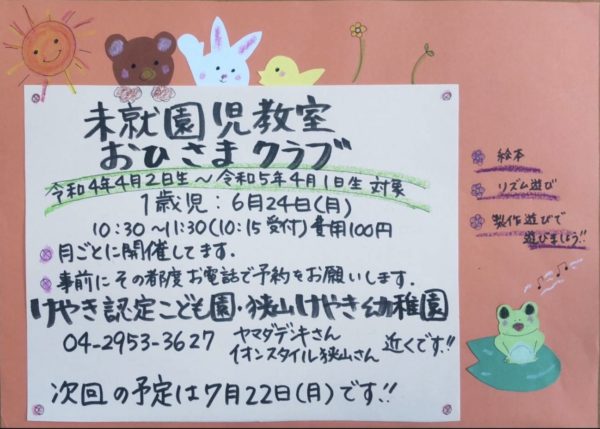 未就園児教室
おひさまクラブ
令和4年4月2日生～令和5年4月1日生 対象
1歳児：6月24日(月)
10:30～11:30(10:15受付)費用100円
月ごとに開催してます.
事前にその都度お電話で予約をお願いします.
けやき認定こども園・狭山けやき幼稚園
04-2953-3627
ヤマダデンキさん
イオンスタイル狭山さん
近くです!!
次回の予定は7月22日(月)です!!
絵本
リズム遊び
製作遊びで
遊びましょう!!